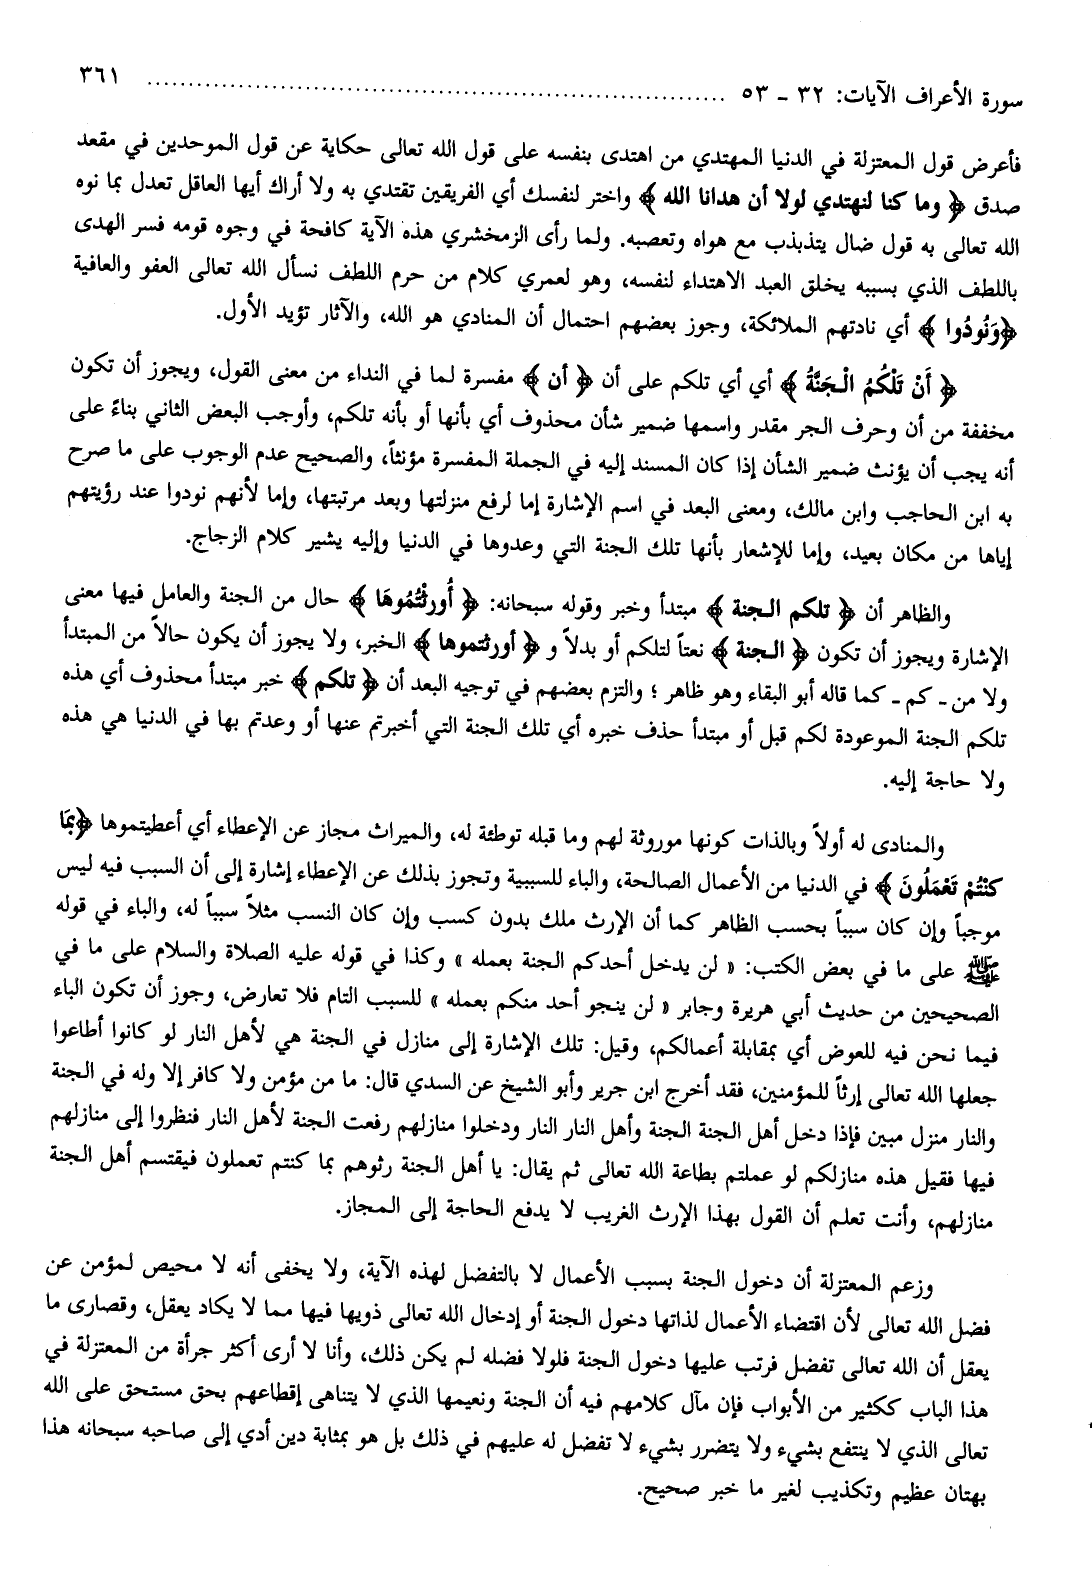 سورة الأعراف الآيات: ٣٢ ـ ٥٣ ........................................................................ ٣٦١
فأعرض قول المعتزلة في الدنيا المهتدي من اهتدى بنفسه على قول الله تعالى حكاية عن قول الموحدين في مقعد
صدق ﴿ وما كنا لنهتدي لولا أن هدانا الله ﴾ واختر لنفسك أي الفريقين تقتدي به ولا أراك أيها العاقل تعدل بما نوه
الله تعالى به قول ضال يتذبذب مع هواه وتعصبه. ولما رأى الزمخشري هذه الآية كافحة في وجوه قومه فسر الهدى
باللطف الذي بسببه يخلق العبد الاهتداء لنفسه، وهو لعمري كلام من حرم اللطف نسأل الله تعالى العفو والعافية
﴿وَنُودُوا ﴾ أي نادتهم الملائكة، وجوز بعضهم احتمال أن المنادي هو الله، والآثار تؤيد الأول.
﴿ أَنْ تَلْكُمُ الْجَنَّةُ ﴾ أي أي تلكم على أن ﴿ أن ﴾ مفسرة لما في النداء من معنى القول، ويجوز أن تكون
مخففة من أن وحرف الجر مقدر واسمها ضمير شأن محذوف أي بأنها أو بأنه تلكم، وأوجب البعض الثاني بناءً على
أنه يجب أن يؤنث ضمير الشأن إذا كان المسند إليه في الجملة المفسرة مؤنثاً، والصحيح عدم الوجوب على ما صرح
به ابن الحاجب وابن مالك، ومعنى البعد في اسم الإشارة إما لرفع منزلتها وبعد مرتبتها، وإما لأنهم نودوا عند رؤيتهم
إياها من مكان بعيد، وإما للإشعار بأنها تلك الجنة التي وعدوها في الدنيا وإليه يشير كلام الزجاج.
والظاهر أن ﴿ تلكم الجنة ﴾ مبتدأ وخبر وقوله سبحانه: ﴿ أُورِثْتُمُوهَا ﴾ حال من الجنة والعامل فيها معنى
الإشارة ويجوز أن تكون ﴿ الجنة ﴾ نعتاً لتلكم أو بدلاً و ﴿ أورثتموها ﴾ الخبر، ولا يجوز أن يكون حالاً من المبتدأ
ولا من ـ كم ـ كما قاله أبو البقاء وهو ظاهر ؛ والتزم بعضهم في توجيه البعد أن ﴿ تلكم ﴾ خبر مبتدأ محذوف أي هذه
تلكم الجنة الموعودة لكم قبل أو مبتدأ حذف خبره أي تلك الجنة التي أخبرتم عنها أو وعدتم بها في الدنيا هي هذه
ولا حاجة إليه.
والمنادى له أولاً وبالذات كونها موروثة لهم وما قبله توطئة له، والميراث مجاز عن الإعطاء أي أعطيتموها ﴿بِمَا
كنْتُمْ تَعْمَلُونَ ﴾ في الدنيا من الأعمال الصالحة، والباء للسببية وتجوز بذلك عن الإعطاء إشارة إلى أن السبب فيه ليس
موجباً وإن كان سبباً بحسب الظاهر كما أن الإرث ملك بدون كسب وإن كان النسب مثلاً سبباً له، والباء في قوله
ﷺ على ما في بعض الكتب: « لن يدخل أحدكم الجنة بعمله » وكذا في قوله عليه الصلاة والسلام على ما في
الصحيحين من حديث أبي هريرة وجابر « لن ينجو أحد منكم بعمله » للسبب التام فلا تعارض، وجوز أن تكون الباء
فيما نحن فيه للعوض أي بمقابلة أعمالكم، وقيل: تلك الإشارة إلى منازل في الجنة هي لأهل النار لو كانوا أطاعوا
جعلها الله تعالى إرثاً للمؤمنين، فقد أخرج ابن جرير وأبو الشيخ عن السدي قال: ما من مؤمن ولا كافر إلا وله في الجنة
والنار منزل مبين فإذا دخل أهل الجنة الجنة وأهل النار النار ودخلوا منازلهم رفعت الجنة لأهل النار فنظروا إلى منازلهم
فيها فقيل هذه منازلكم لو عملتم بطاعة الله تعالى ثم يقال: يا أهل الجنة رثوهم بما كنتم تعملون فيقتسم أهل الجنة
منازلهم، وأنت تعلم أن القول بهذا الإرث الغريب لا يدفع الحاجة إلى المجاز.
وزعم المعتزلة أن دخول الجنة بسبب الأعمال لا بالتفضل لهذه الآية، ولا يخفى أنه لا محيص لمؤمن عن
فضل الله تعالى لأن اقتضاء الأعمال لذاتها دخول الجنة أو إدخال الله تعالى ذويها فيها مما لا يكاد يعقل، وقصارى ما
يعقل أن الله تعالى تفضل فرتب عليها دخول الجنة فلولا فضله لم يكن ذلك، وأنا لا أرى أكثر جرأة من المعتزلة في
هذا الباب ككثير من الأبواب فإن مآل كلامهم فيه أن الجنة ونعيمها الذي لا يتناهى إقطاعهم بحق مستحق على الله
تعالى الذي لا ينتفع بشيء ولا يتضرر بشيء لا تفضل له عليهم في ذلك بل هو بمثابة دين أدي إلى صاحبه سبحانه هذا
بهتان عظيم وتكذيب لغير ما خبر صحيح.